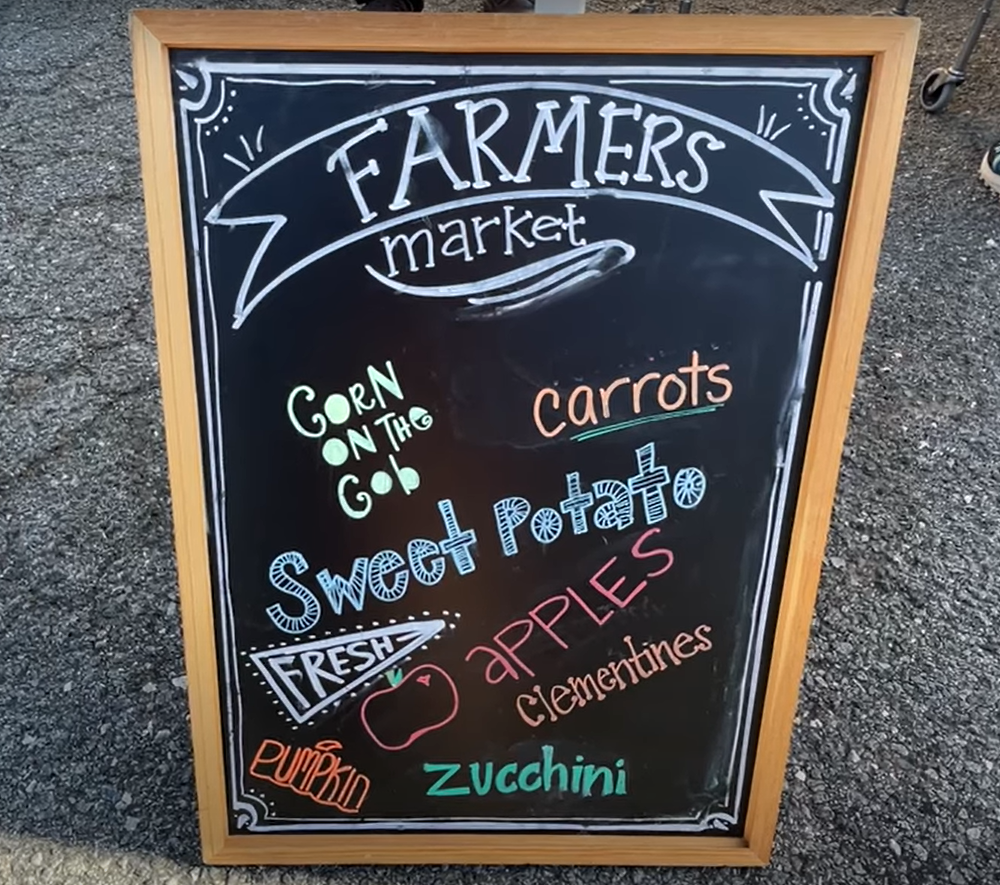 FARMERS
market
CORN
ON THE
COb
carrots
Sweet Potato
APPLES
FRESH
clementines
PUMPKIN
zucchini